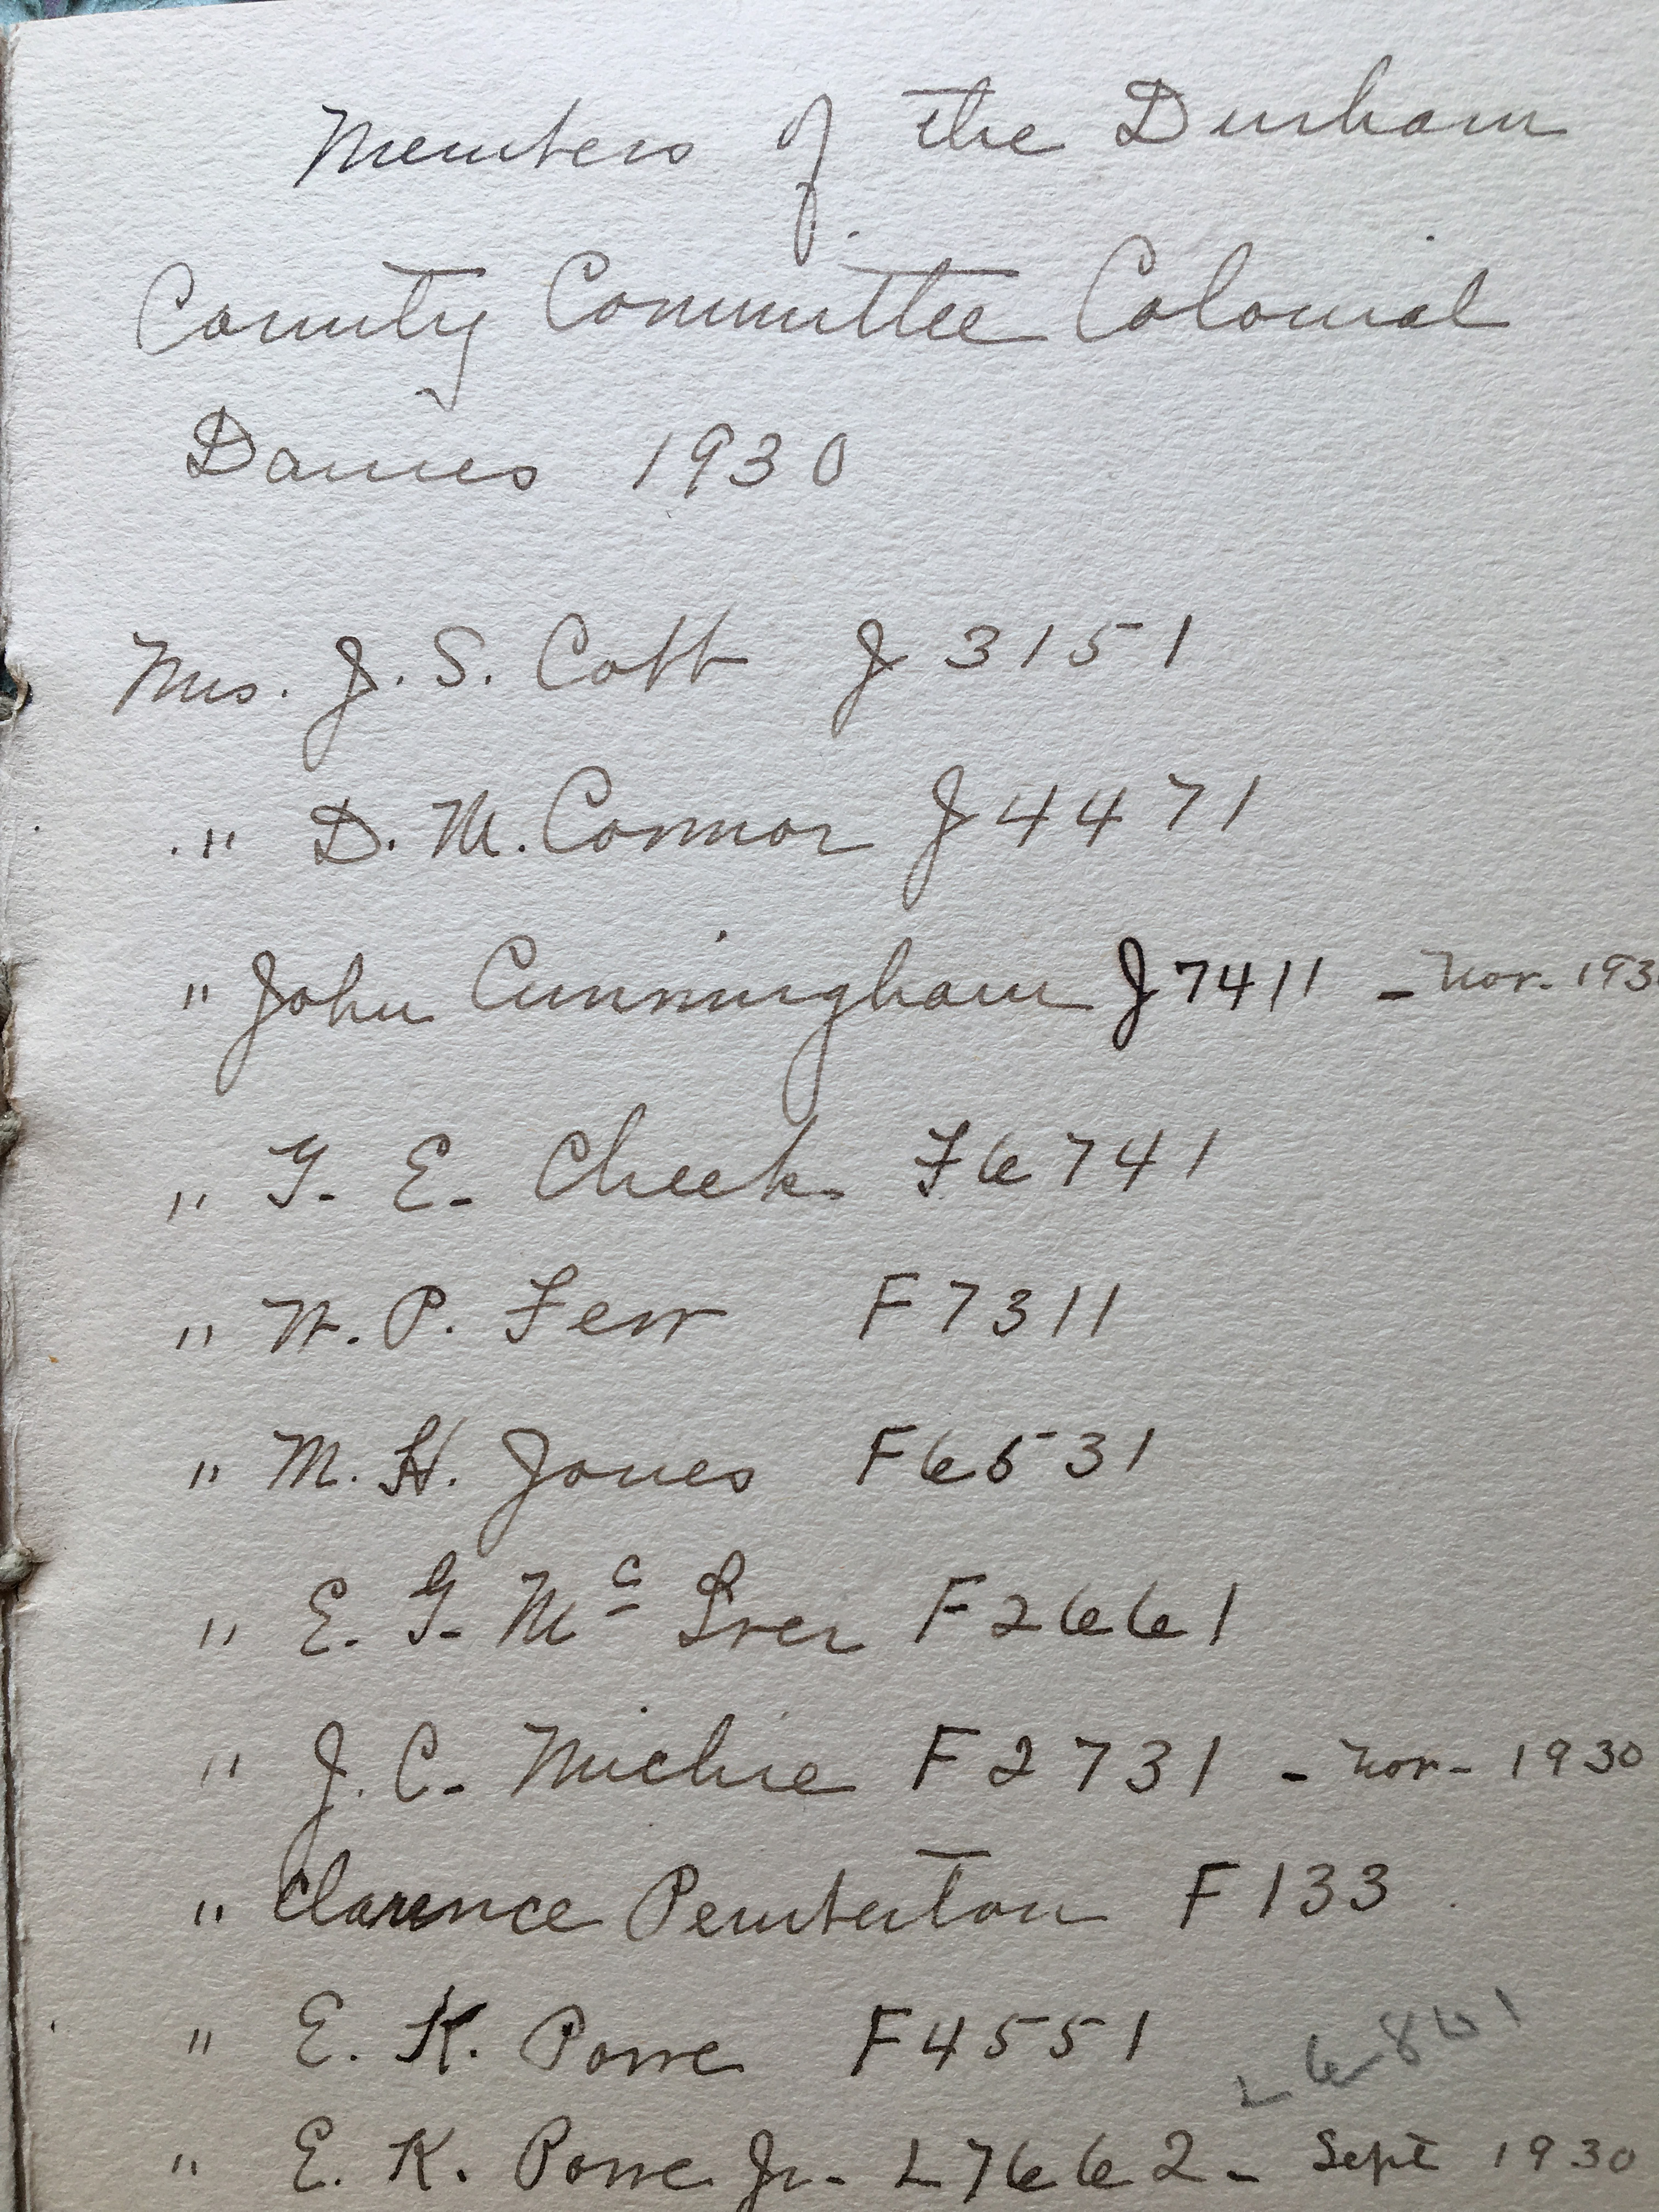 Members of the Durham
County Committee Colonial
Dames 1930
Mrs. J. S. Cobb J 3151
" D. M. Connor J 4471
" John Cunningham J 7411 - Nov. 193
" T. E. Cheek F 6741
" W. P. Few F 7311
" M. H. Jones F 6531
" E. G. Mc Iver F 2661
" J. C. Michie F 2731 - Nov - 1930
" Clarence Pemberton F 133
" E. K. Powe F 4551
L 6801
" E. K. Powe Jr. L 7662 - Sept 1930